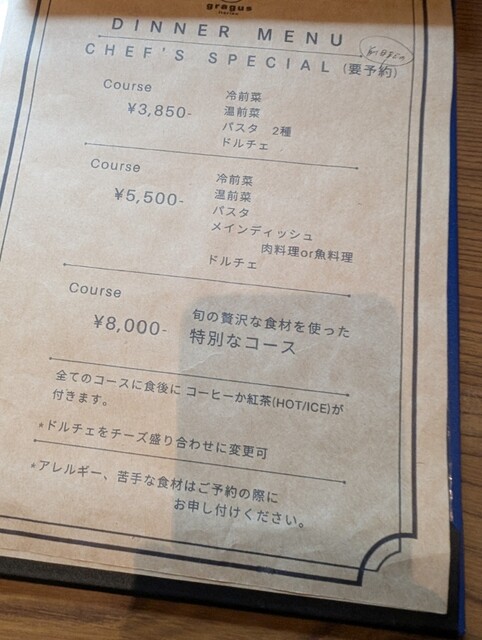 gragus
DINNER MENU
CHEF'S SPECIAL (要予約)
Course
¥3,850-
冷前菜
温前菜
パスタ 2種
ドルチェ
Course
¥5,500-
冷前菜
温前菜
パスタ
メインディッシュ
肉料理or魚料理
ドルチェ
Course
¥8,000-
旬の贅沢な食材を使った
特別なコース
全てのコースに食後に コーヒーか紅茶(HOT/ICE)が
付きます。
*ドルチェをチーズ盛り合わせに変更可
*アレルギー、苦手な食材はご予約の際に
お申し付けください。